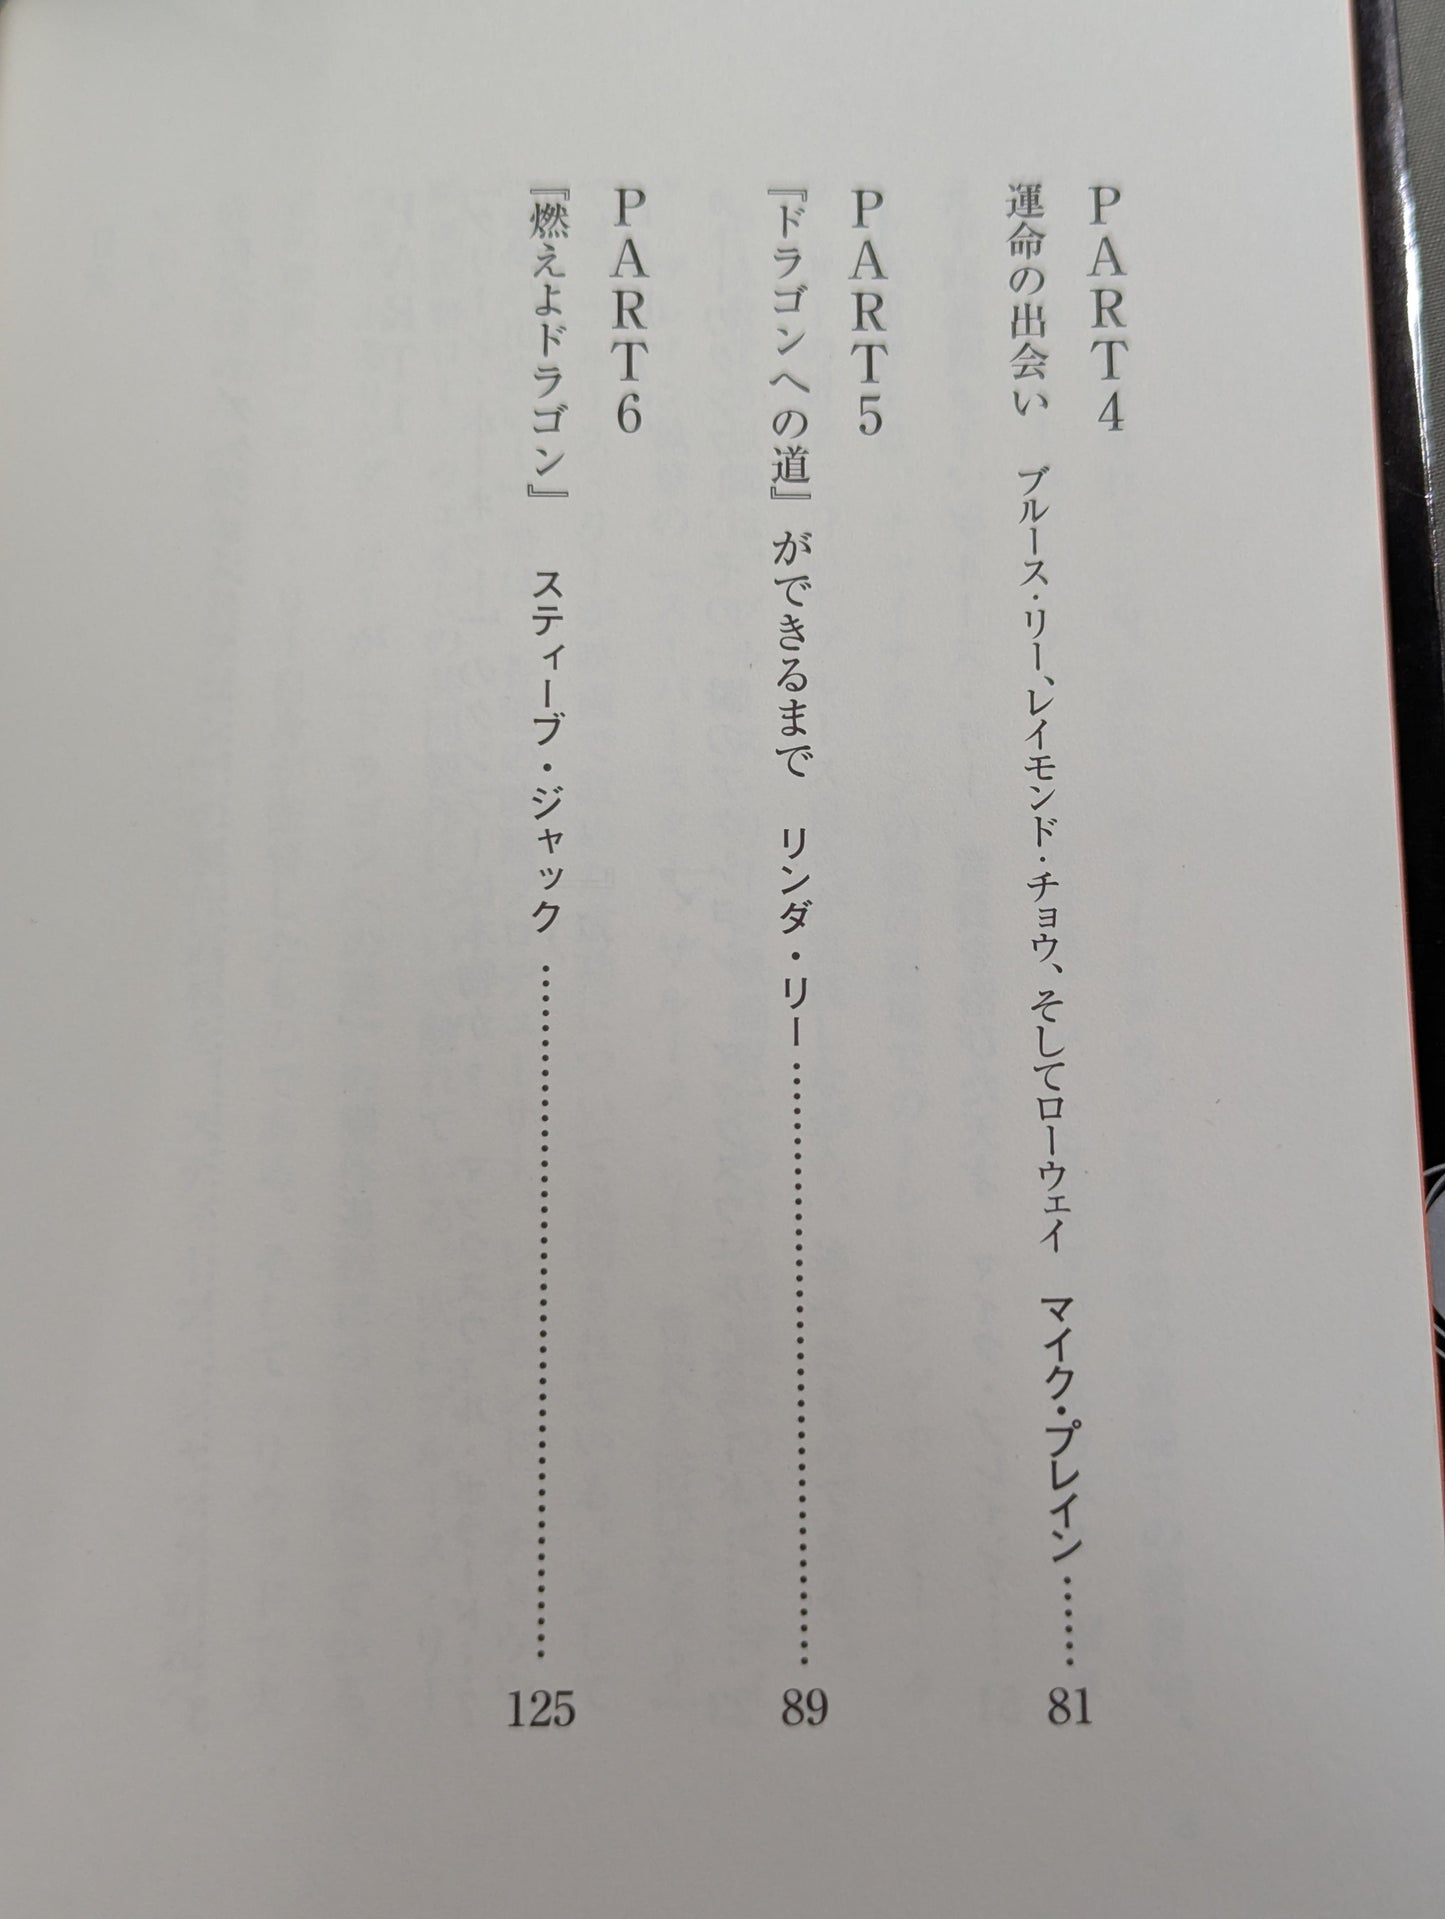 PART4
運命の出会い　ブルース・リー、レイモンド・チョウ、そしてローウェイ　マイク・プレイン……81
PART5
『ドラゴンへの道』ができるまで　リンダ・リー……………………………………89
PART6
『燃えよドラゴン』　スティーブ・ジャック……………………………………………125